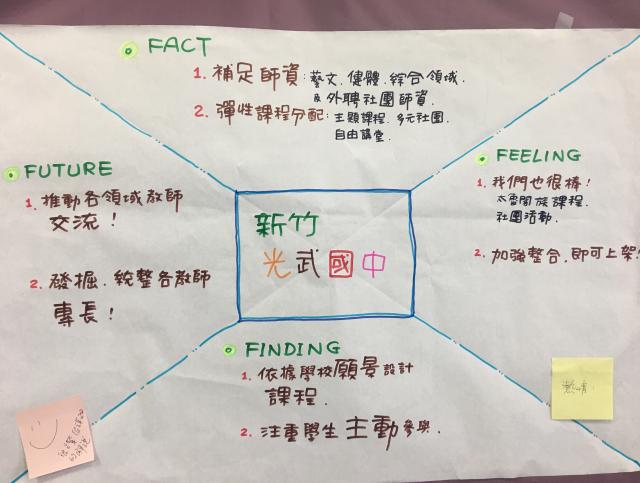 FACT
1. 補足師資：藝文、健體、綜合領域、
及外聘社團師資.
2. 彈性課程分配：主題課程、多元社團、
自由講堂.
FUTURE
1. 推動各領域教師
交流！
2. 發掘、統整各教師
專長！
FEELING
1. 我們也很棒！
課程.
社團活動.
2. 加強整合、即可上架！
新竹
光武國中
FINDING
1. 依據學校願景設計
課程.
2. 注重學生主動參與.